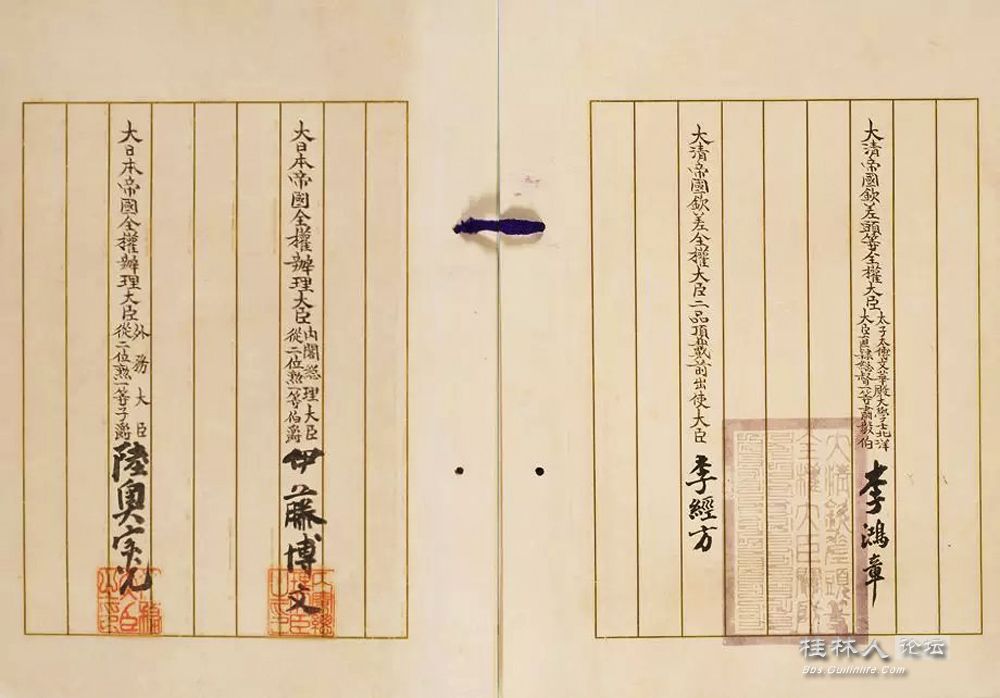 大清帝國欽差頭等全權大臣
太子太傅文華殿大學士北洋
大臣直隸總督一等肅毅伯
李鴻章
大清帝國欽差全權大臣二品頂戴前出使大臣
李經方
大日本帝國全權辦理大臣
內閣總理大臣
從二位勲一等伯爵
伊藤博文
大日本帝國全權辦理大臣
外務大臣
從二位勲一等子爵
陸奥宗光
大清欽差頭等
全權大臣
桂林人论坛
Bbs.Guilinlife.Com